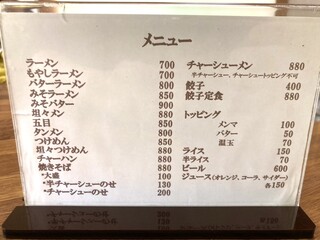 メニュー
ラーメン 700
もやしラーメン 700
バターラーメン 800
みそラーメン 850
みそバター 900
坦々メン 850
五目 850
タンメン 800
つけめん 850
坦々つけめん 850
チャーハン 800
焼きそば 800
・大盛 100
・半チャーシューのせ 130
・チャーシューのせ 200
チャーシューメン 880
半チャーシュー、チャーシュートッピング不可
餃子 400
餃子定食 880
トッピング
メンマ 100
バター 50
温玉 70
ライス 150
半ライス 70
ビール 600
ジュース(オレンジ、コーラ、サイダー)
各150